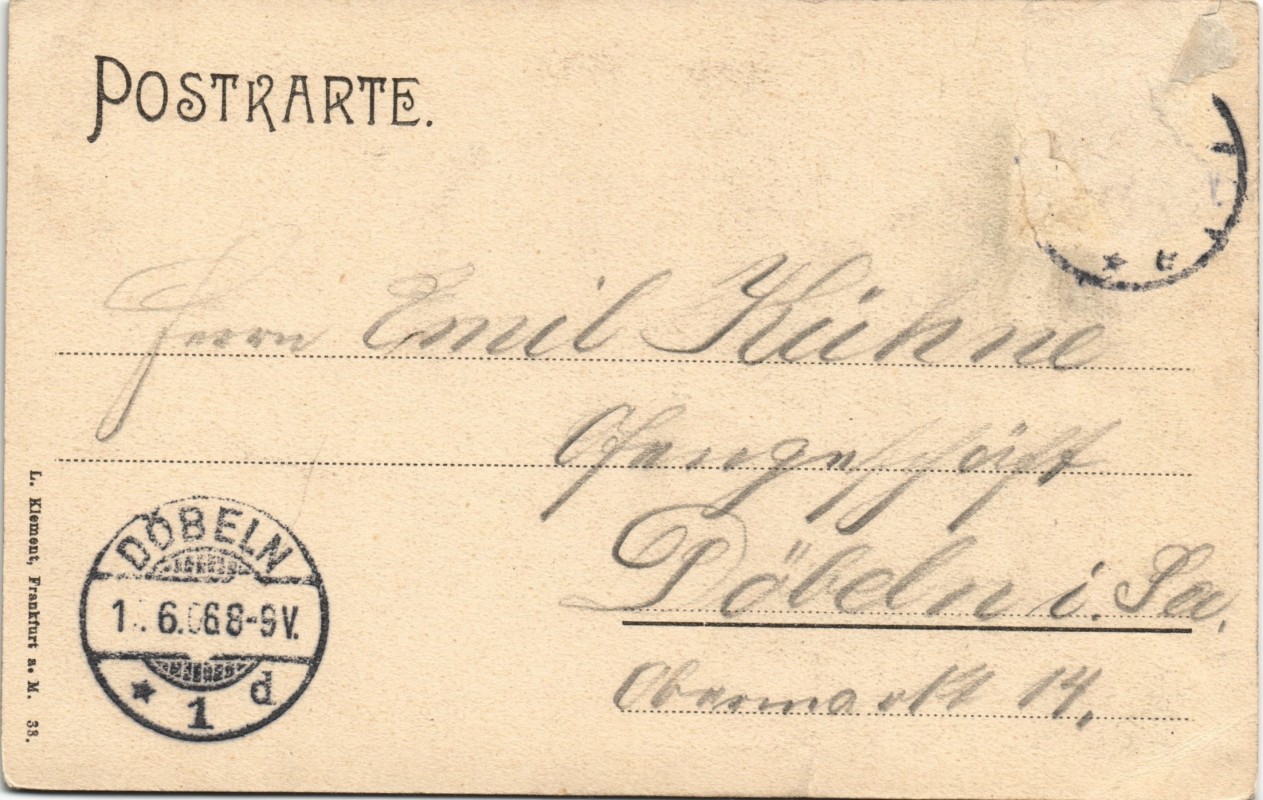 POSTKARTE.
Herrn Emil Kühne
Ofengeschäft
Döbeln i. Sa.
Obermarkt 14.
DÖBELN
6. 06 8-9V.
* 1 d
L. Klement, Frankfurt a. M. 33.